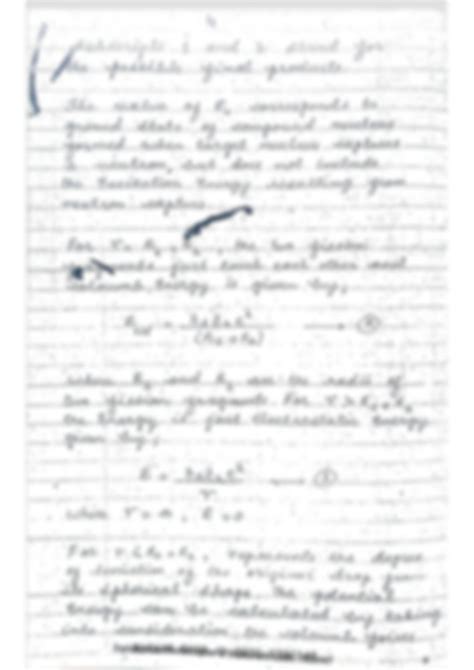 4
subscripts 1 and 2 stand for
the possible final products.
The value of E₀ corresponds to
ground state of compound nucleus
formed when target nucleus captures
a neutron, but does not include
the Excitation Energy resulting from
neutron capture.
For r = R₁ + R₂, the two fission
fragments just touch each other and
coulomb Energy is given by,
= Z₁Z₂e² / (R₁+R₂)
where R₁ and R₂ are the radii of
two fission fragments. For r > R₁+R₂
the Energy is just Electrostatic Energy
given by,
E = Z₁Z₂e² / r
when r = ∞, E = 0
For r < R₁+R₂, represents the degree
of deviation of the original drop from
its spherical shape. The potential
Energy can be calculated by taking
into consideration the coulomb forces